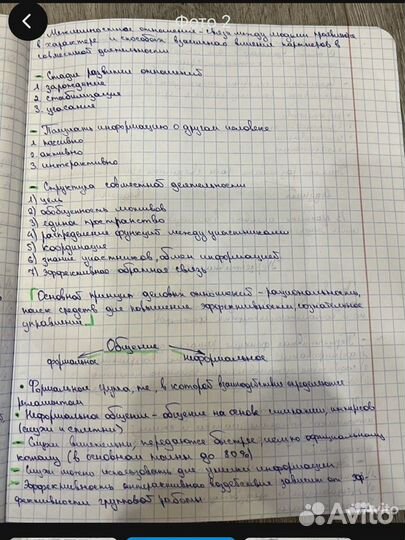 Фото 2
Межличностные отношения - связь между людьми проявляется
в характере и способах взаимного влияния партнеров в
совместной деятельности
- Стадии развития отношений
1 зарождение
2 стабилизация
3 угасание
- Получать информацию о другом человеке
1 пассивно
2 активно
3 интерактивно
- Структура совместной деятельности
1) цель
2) общность мотивов
3) единое пространство
4) распределение функций между участниками
5) координация
6) знание участников, обмен информацией
7) эффективная обратная связь
Основной принцип деловых отношений - рациональность,
поиск средств для повышения эффективности,
управлении
Общение
формальное неформальное
• Формальное группа, те, в которой взаимодействие определено
регламентом
• Неформальное общение - общение на основе симпатии, интересов
(слухи и сплетни)
- Слухи передаются быстрее чем по официальному
каналу (в основном полны до 80%)
- слухи можно использовать для утечки информации
- Эффективность воздействия зависит от эф-
фективности групповой работы
Avito